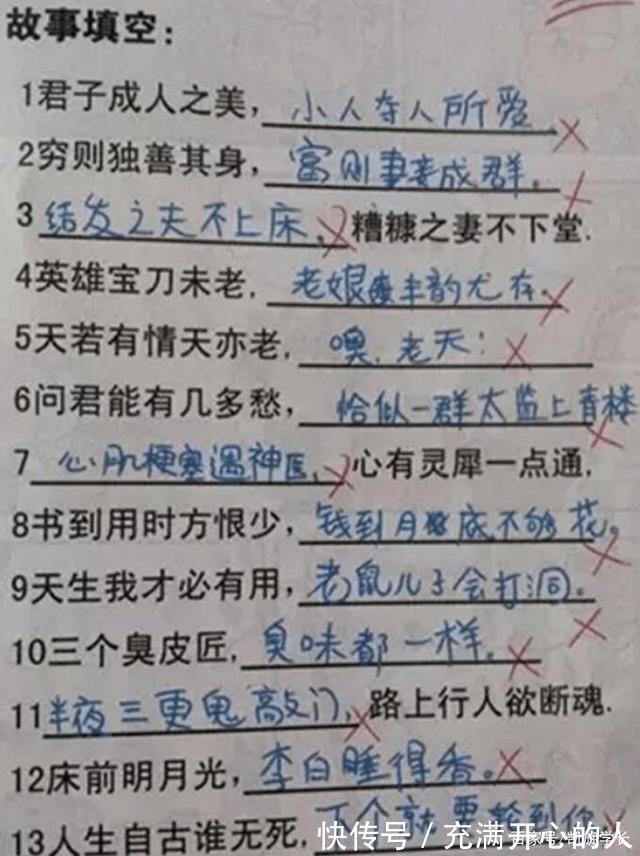 故事填空:
1君子成人之美,小人夺人所爱
2穷则独善其身,富则妻妾成群。
3结发之夫不上床,糟糠之妻不下堂.
4英雄宝刀未老,老娘丰韵尤存.
5天若有情天亦老,噢,老天!
6问君能有几多愁,恰似一群太监上青楼
7心肌梗塞遇神医,心有灵犀一点通.
8书到用时方恨少,钱到月底不够花。
9天生我才必有用,老鼠儿子会打洞。
10三个臭皮匠,臭味都一样。
11半夜三更鬼敲门,路上行人欲断魂.
12床前明月光,李白睡得香。
13人生自古谁无死,下个就要轮到你
快传号/充满开心的人